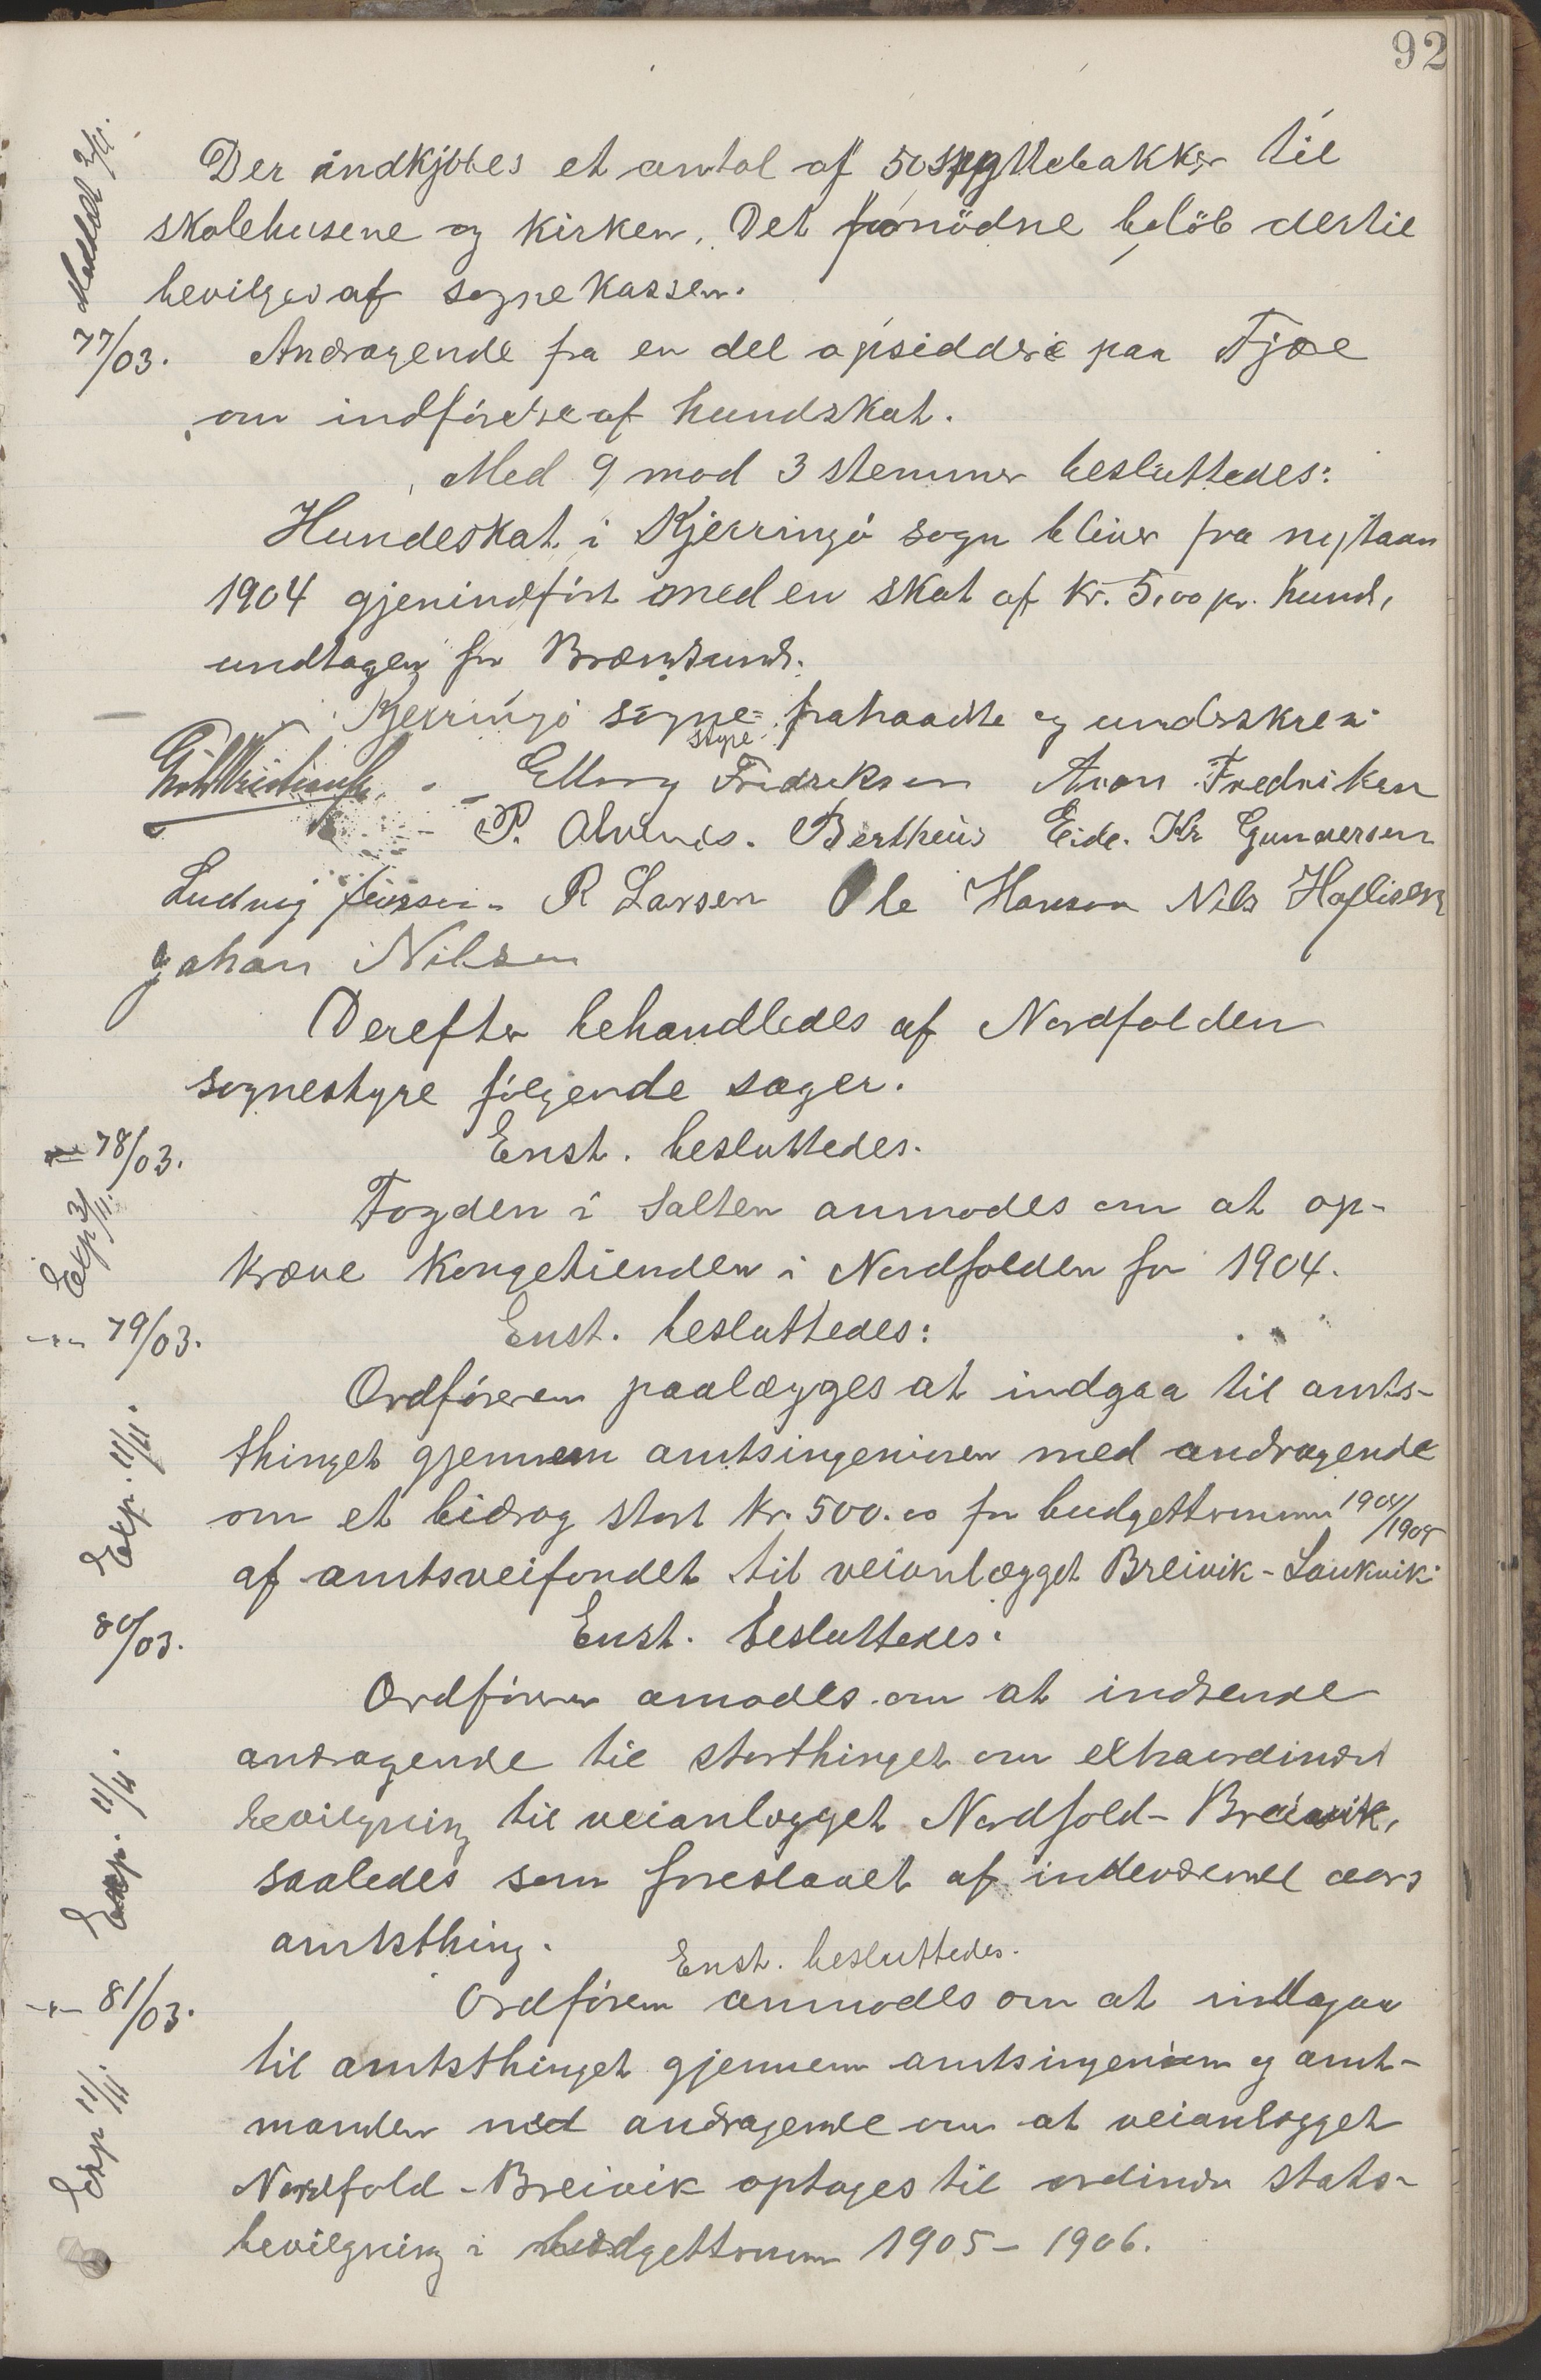 92
Meddelt 2/11.
Der indkjöbes et antal af 50 spyttebakker til
skolehusene og kirken. Det fornödne belöb dertil
bevilges af sognekassen.
77/03. Andragende fra en del opsiddere paa Fjære
om indförelse af hundskat.
Med 9 mod 3 stemmer besluttedes:
Hundeskat i Kjerringö sogn bliver fra nytaar
1904 gjenindfört med en skat af kr. 5,00 pr. hund,
undtagen for Brændsund.
Kjerringö sogne=
styre
frahaadte og underskrev:
Elling Fredriksen Aron Fredriksen
P. Alvenes. Bertheus Eide. Kr Gunnersen
Ludvig Jenssen R Larsen Ole Hansen Nils Haflisen
Johan Nilsen
Derefter behandledes af Nordfolden
sognestyre fölgende sager.
78/03. Enst. besluttedes.
Exp 3/11.
Fogden i Salten anmodes om at op-
kræve Kongetienden i Nordfolden for 1904.
79/03. Enst. besluttedes:
Exp. 11/11.
Ordföreren paalægges at indgaa til amts-
thinget gjennem amtsingeniören med andragende
om et bidrag stort kr. 500.00 for budgetterminen 1904/1905
af amtsveifondet til veianlægget Breivik-Laukvik.
80/03. Enst. besluttedes.
Exp. 11/11.
Ordföreren amodes om at indsende
andragende til storthinget om extraordinær
bevilgning til veianlægget Nordfold-Breivik,
saaledes som foreslaaet af indeværende aars
amtsthing.
Enst. besluttedes.
81/03. Ordföreren anmodes om at indgaa
Exp 11/11.
til amtsthinget gjennem amtsingeniören og amt-
manden med andragende om at veianlægget
Nordfold-Breivik optages til ordinær stats-
bevilgning i budgetterminen 1905-1906.